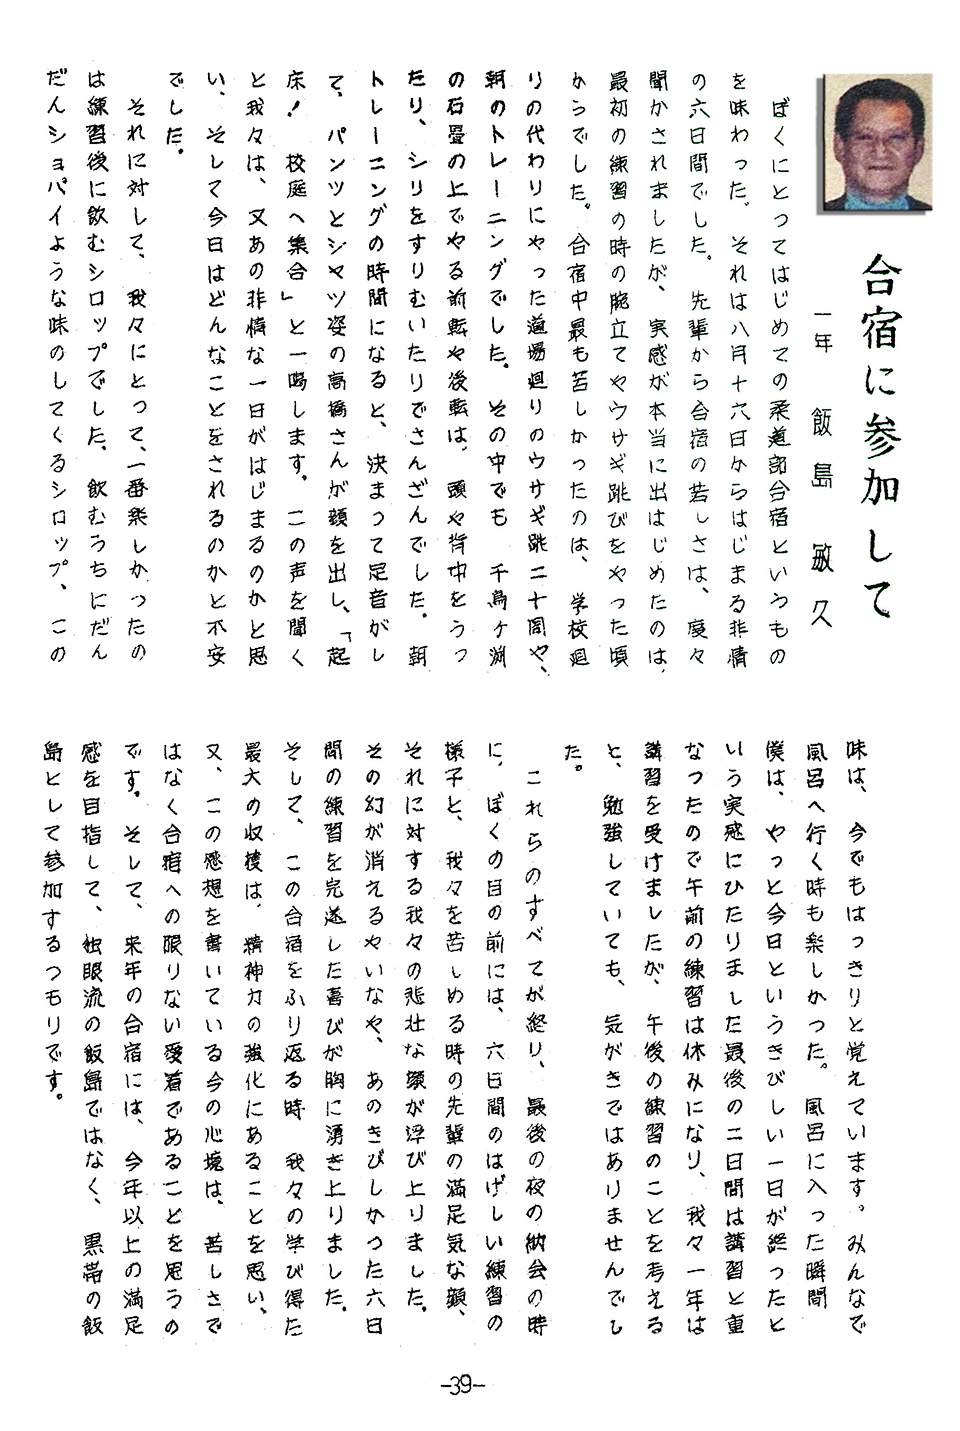 合宿に参加して
一年　飯島　敏久
ぼくにとってはじめての柔道部合宿というもの
を味わった。それは八月十六日からはじまる非情
の六日間でした。　先輩から合宿の苦しさは、度々
聞かされましたが、　実感が本当に出はじめたのは、
最初の練習の時の腕立てやウサギ跳びをやった頃
からでした。合宿中最も苦しかったのは、　学校廻
りの代わりにやった道場廻りのウサギ跳二十周や、
朝のトレーニングでした。　その中でも　千鳥ヶ淵
の石畳の上でやる前転や後転は、　頭や背中をうっ
たり、シリをすりむいたりでさんざんでした。　朝
トレーニングの時間になると、決まって足音がし
て、　パンツとシャツ姿の高橋さんが顔を出し、「起
床！　校庭へ集合」と一喝します。　この声を聞く
と我々は、　又あの非情な一日がはじまるのかと思
い、　そして今日はどんなことをされるのかと不安
でした。
それに対して、　我々にとって、一番楽しかったの
は練習後に飲むシロップでした。飲むうちにだん
だんショパイような味のしてくるシロップ、　この
味は、　今でもはっきりと覚えています。みんなで
風呂へ行く時も楽しかった。　風呂に入った瞬間
僕は、　やっと今日というきびしい一日が終ったと
いう実感にひたりました最後の二日間は講習と重
なったので午前の練習は休みになり、我々一年は
講習を受けましたが、　午後の練習のことを考える
と、　勉強していても、　気がきではありませんでし
た。
これらのすべてが終り、　最後の夜の納会の時
に、　ぼくの目の前には、　六日間のはげしい練習の
様子と、　我々を苦しめる時の先輩の満足気な顔、
それに対する我々の悲壮な顔が浮び上りました。
その幻が消えるやいなや、　あのきびしかった六日
間の練習を完遂した喜びが胸に湧き上りました。
そして、　この合宿をふり返る時　我々の学び得た
最大の収穫は、　精神力の強化にあることを思い、
又、　この感想を書いている今の心境は、　苦しさで
はなく合宿への限りない愛着であることを思うの
です。　そして、　来年の合宿には、　今年以上の満足
感を目指して、　独眼流の飯島ではなく、　黒帯の飯
島として参加するつもりです。
-39-